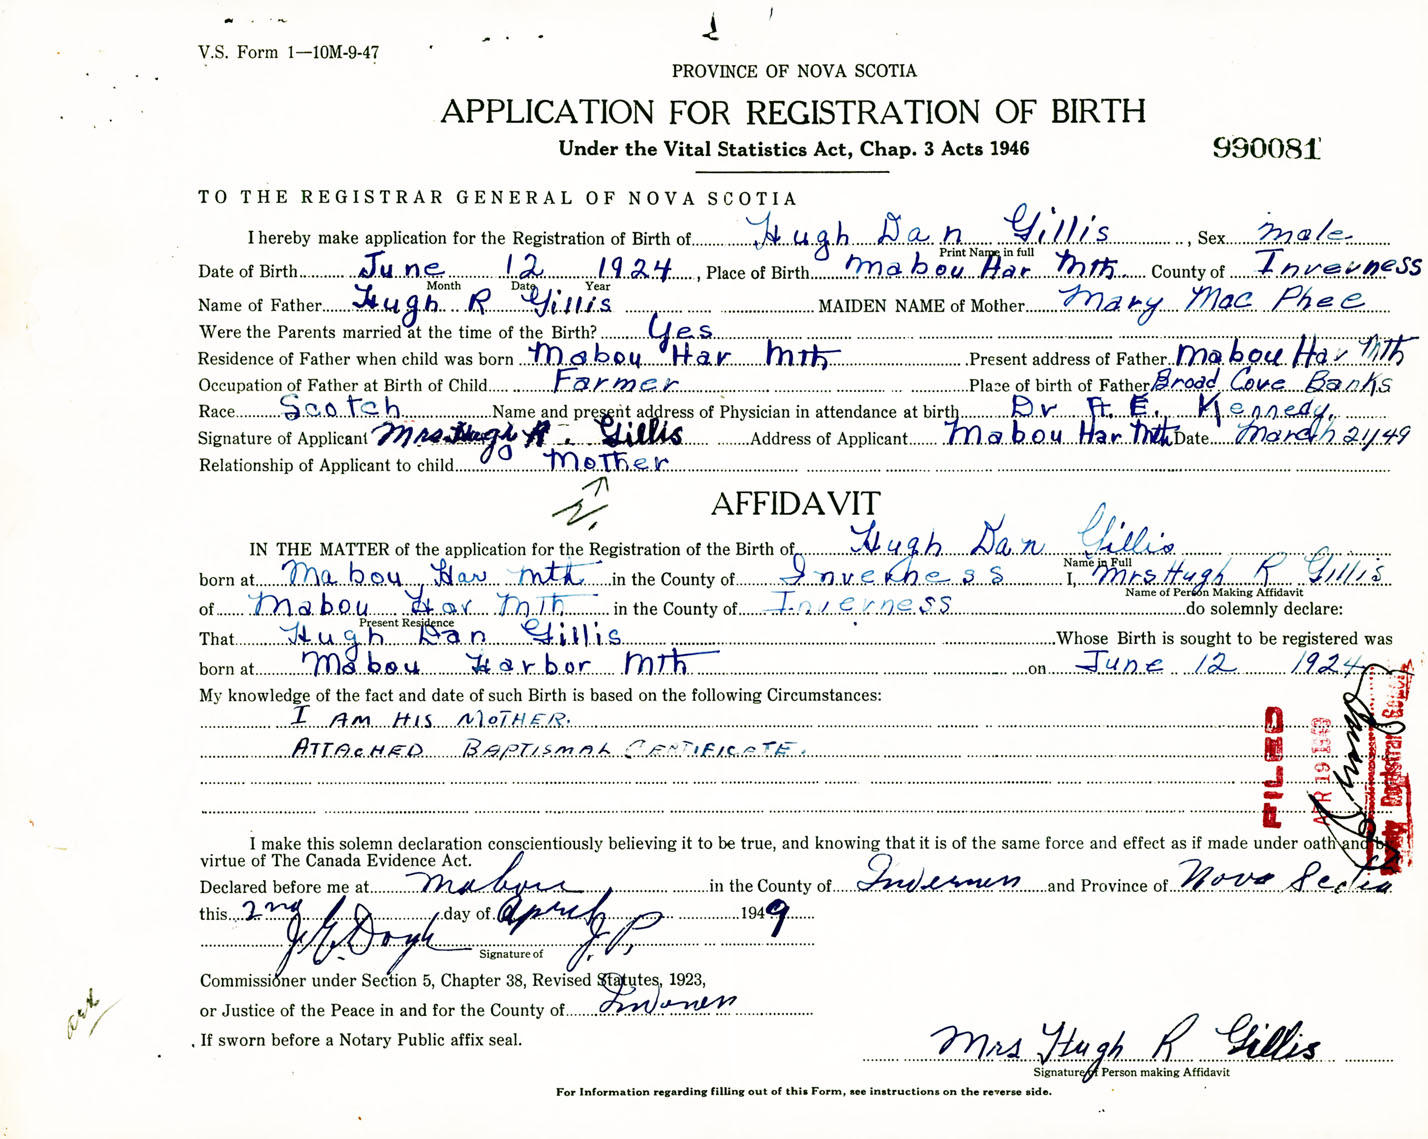 V.S. Form 1—10M-9-47
PROVINCE OF NOVA SCOTIA
APPLICATION FOR REGISTRATION OF BIRTH
Under the Vital Statistics Act, Chap. 3 Acts 1946
990081
TO THE REGISTRAR GENERAL OF NOVA SCOTIA
I hereby make application for the Registration of Birth of Hugh Dan Gillis, Sex Male
Print Name in full
Date of Birth June 12 1924, Place of Birth Mabou Har Mth County of Inverness
Month Date Year
Name of Father Hugh R Gillis MAIDEN NAME of Mother Mary Mac Phee
Were the Parents married at the time of the Birth? Yes
Residence of Father when child was born Mabou Har Mth Present address of Father Mabou Har Mth
Occupation of Father at Birth of Child Farmer Place of birth of Father Broad Cove Banks
Race Scotch Name and present address of Physician in attendance at birth Dr A. E. Kennedy.
Signature of Applicant Mrs Hugh R. Gillis Address of Applicant Mabou Har Mth Date March 21/49
Relationship of Applicant to child Mother
AFFIDAVIT
IN THE MATTER of the application for the Registration of the Birth of Hugh Dan Gillis
Name in Full
born at Mabou Har Mth in the County of Inverness I, Mrs Hugh R Gillis
Name of Person Making Affidavit
of Mabou Har Mth in the County of Inverness do solemnly declare:
Present Residence
That Hugh Dan Gillis Whose Birth is sought to be registered was
born at Mabou Harbor Mth on June 12 1924
My knowledge of the fact and date of such Birth is based on the following Circumstances:
I AM HIS MOTHER.
ATTACHED BAPTISMAL CERTIFICATE.
FILED
I make this solemn declaration conscientiously believing it to be true, and knowing that it is of the same force and effect as if made under oath and by
virtue of The Canada Evidence Act.
Declared before me at Mabou, in the County of Inverness and Province of Nova Scotia
this 2nd day of April 1949
J. E. Doyle J.P.
Signature of
Commissioner under Section 5, Chapter 38, Revised Statutes, 1923,
or Justice of the Peace in and for the County of Inverness
If sworn before a Notary Public affix seal.
Mrs Hugh R Gillis
Signature of Person making Affidavit
For Information regarding filling out of this Form, see instructions on the reverse side.